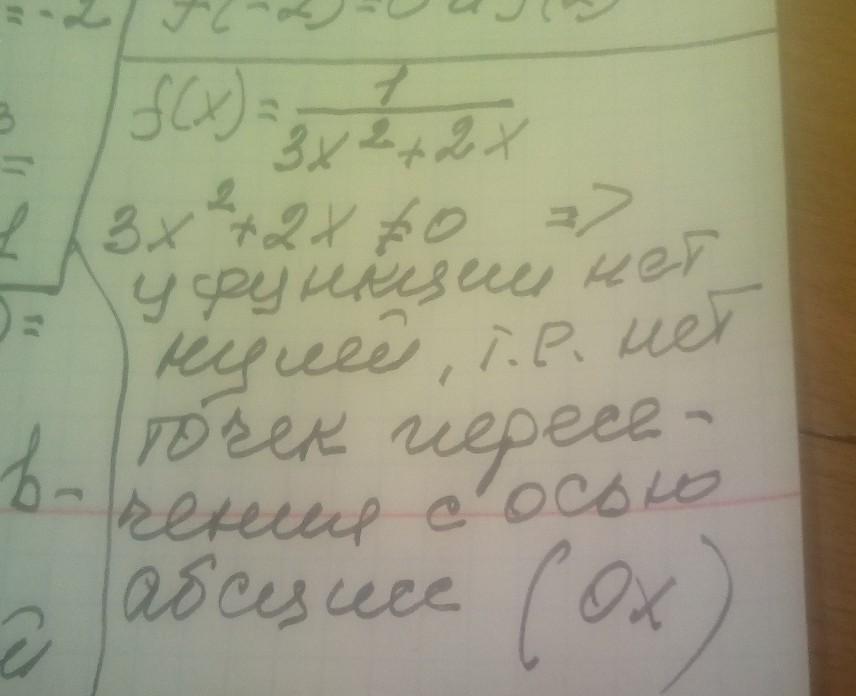 =-2
f(x) = 1 / 3x² + 2x
3x² + 2x ≠ 0 =>
у функции нет
нулей, т.е. нет
точек пересе-
чения с осью
абсцисс (Ох)